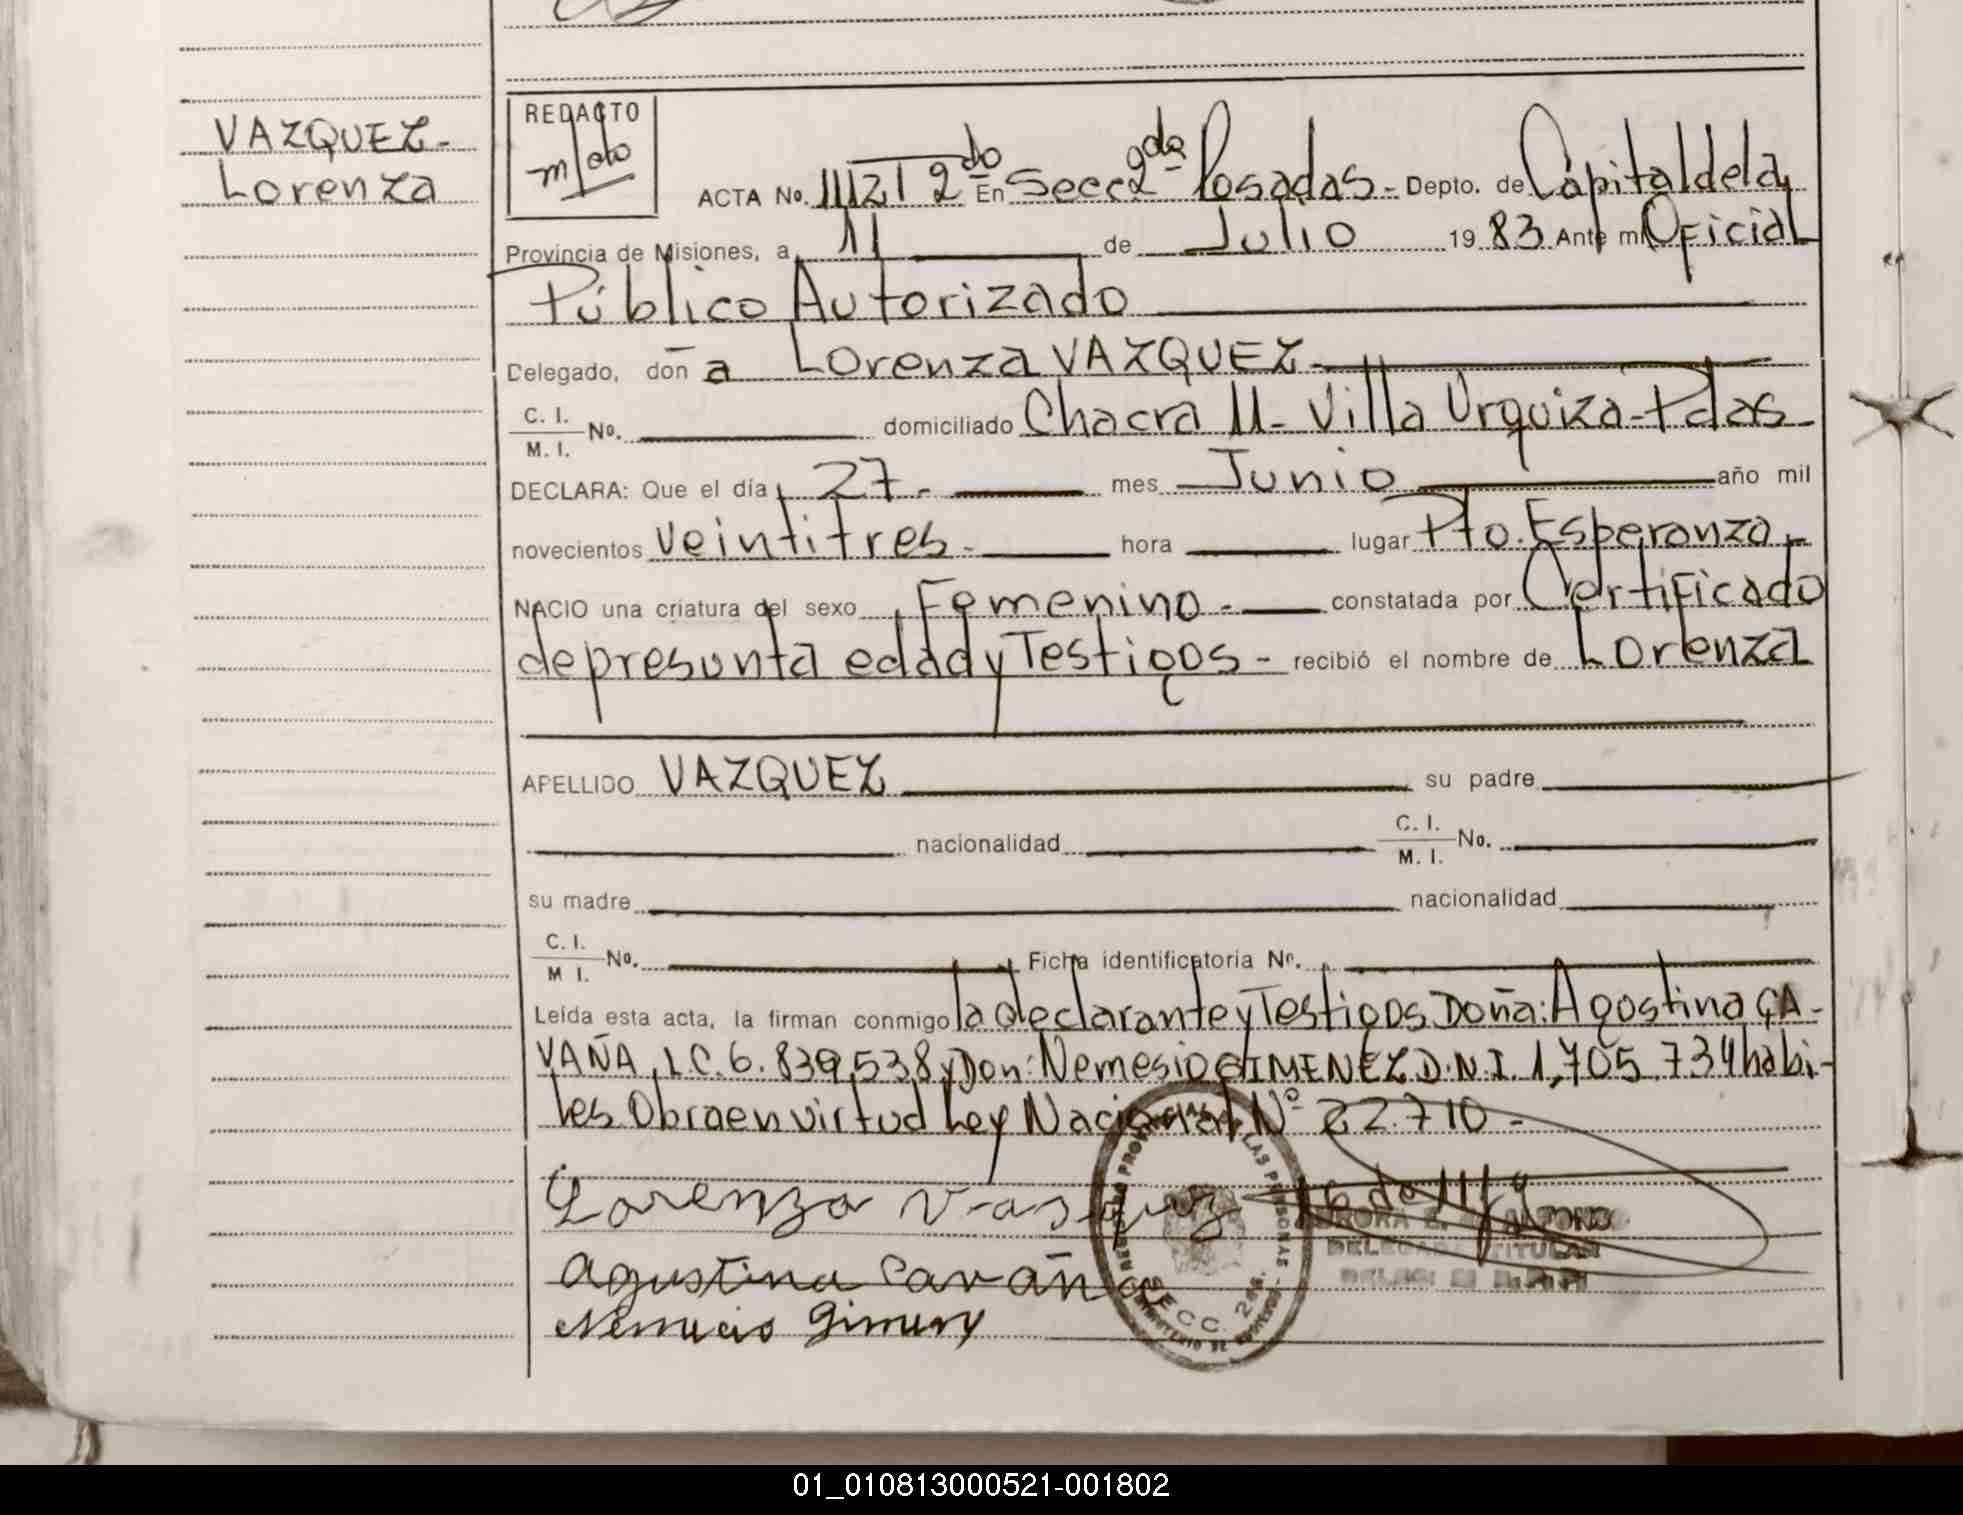 VAZQUEZ-
Lorenza
REDACTO
ACTA No. 1112 T 2do En Secc 2da Posadas- Depto. de Capital de la
Provincia de Misiones, a 11 de Julio 19 83 Ante mi Oficial
Público Autorizado
Delegado, doña Lorenza VAZQUEZ
C. I. / M. I. No. domiciliado Chacra 11- Villa Urquiza-Pdas-
DECLARA: Que el día 27- mes Junio año mil
novecientos veintitres- hora lugar Pto. Esperanza-
NACIO una criatura del sexo Femenino- constatada por Certificado
de presunta edad y Testigos- recibió el nombre de Lorenza
APELLIDO VAZQUEZ su padre
nacionalidad C. I. / M. I. No.
su madre nacionalidad
C. I. / M I. No. Ficha identificatoria Nº.
Leída esta acta, la firman conmigo la declarante y Testigos Doña: Agostina CA-
VAÑA, L.C. 6.839.538 y Don: Nemesio GIMENEZ D.N.I. 1,705.734 habi-
les Obra en virtud Ley Nacional Nº 22.710-
Lorenza Vasquez
Agustina Cavaña
Nemecio Gimenez
LAS PERSONAS
SECC. 2da.
DELEGADA TITULAR
01_010813000521-001802